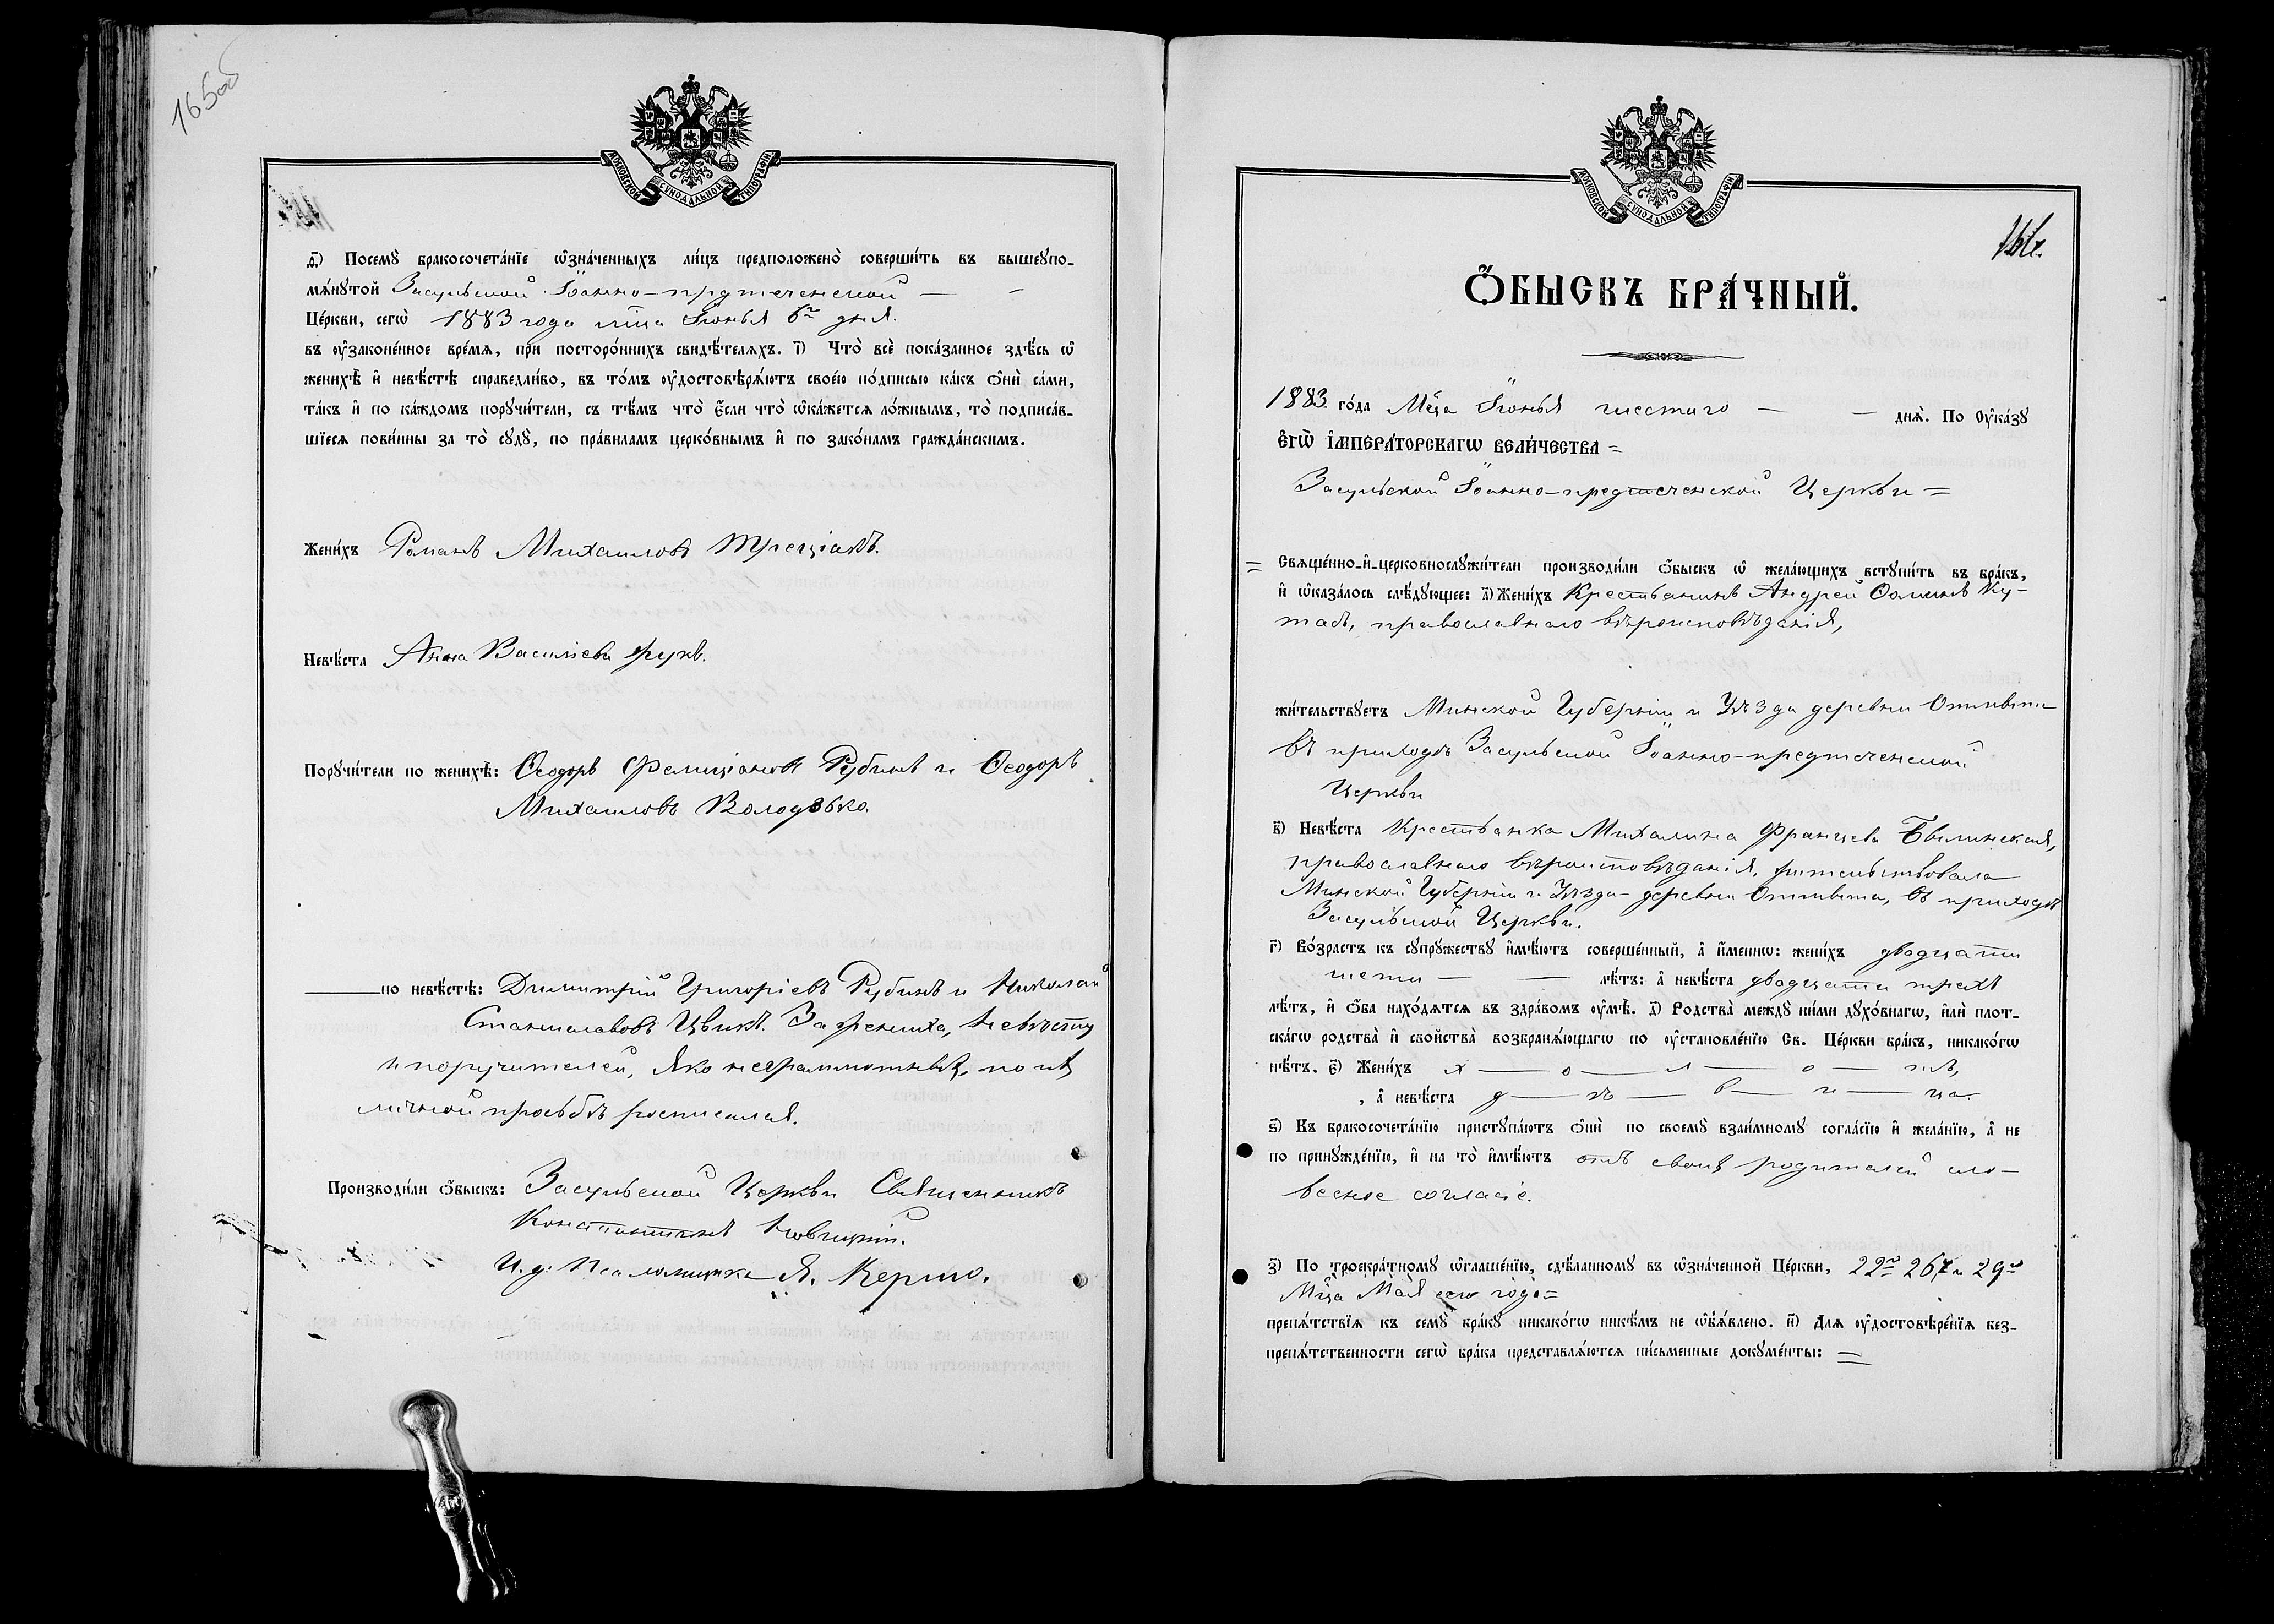 165об
МОСКОВСКОЙ СѴНОДАЛЬНОЙ ТИПОГРАФІИ
ѳ҃) Посемꙋ̀ бракосочета́нїе ѡ҆зна́ченныхъ ли́цъ предположено̀ соверши́ть въ вышеꙋпо-
мѧ́нꙋтой Засульской Іоанно-предтеченской — -
Це́ркви, сегѡ̀ 1883 года м҃ца Іюнья 6го дня.
въ ᲂу҆законе́нное вре́мѧ, при посторо́ннихъ свидѣ́телѧхъ. і҃) Что̀ всѐ пока́занное здѣ́сь ѡ҆
женихѣ̀ и҆ невѣ́стѣ справедли́во, въ то́мъ ᲂу҆достовѣрѧ́ютъ свое́ю по́дписью ка́къ ѻ҆нѝ са́ми,
та́къ и҆ по ка́ждомъ порꙋчи́тели, съ тѣ́мъ что̀ є҆́сли что̀ ѡ҆ка́жетсѧ ло́жнымъ, то̀ подписа́в-
шїесѧ пови́нны за то̀ сꙋдꙋ̀, по пра́виламъ церко́внымъ и҆ по зако́намъ гражда́нскимъ.
Жени́хъ Романъ Михаиловъ Трещіакъ.
Невѣ́ста Анна Василіева Жукъ.
Порꙋчи́тели по женихѣ̀: Ѳеодоръ Фелиціановъ Рубинъ и Ѳеодоръ
Михаиловъ Володзько.
по невѣ́стѣ: Димитрій Григоріевъ Рубинъ и Николай
Станиславовъ Цвикъ. За жениха, невѣсту
и поручителей, яко неграмотныхъ, по ихъ
личной просьбѣ росписался.
Производи́ли ѻ҆́быскъ: Засульской Церкви Священникъ
Константинъ Новицкій.
И. д. Псаломщика Я. Керно.
МОСКОВСКОЙ СѴНОДАЛЬНОЙ ТИПОГРАФІИ
166.
Ѻ҆́БЫСКЪ БРА́ЧНЫЙ.
1883. го́да Мс҃ца Іюнья шестаго — — днѧ̀. По Оу҆ка́зꙋ
Є҆ГѠ̀ И҆МПЕРА́ТОРСКАГѠ ВЕЛИ́ЧЕСТВА =
Засульской Іоанно-предтеченской Церкви =
= Свѧще́нно-и҆-церковнослꙋжи́тели производи́ли ѻ҆́быскъ ѡ҆ жела́ющихъ встꙋпи́ть въ бра́къ,
и҆ ѡ҆каза́лось слѣ́дꙋющее: а҃) Жени́хъ Крестьянинъ Андрей Ѳоминъ Ку-
тасъ, православнаго вѣроисповѣданія,
жи́тельствꙋетъ Минской Губерніи и Уѣзда деревни
въ приходѣ Засульской Іоанно-предтеченской
Церкви
в҃) Невѣ́ста Крестьянка Михалина Францева
православнаго вѣроисповѣданія, жительствовала
Минской Губерніи и Уѣзда - деревни въ приходѣ
Засульской Церкви.
г҃) Во́зрастъ къ сꙋпрꙋ́жествꙋ и҆мѣ́ютъ соверше́нный, а҆ и҆́менно: жени́хъ двадцати
шести — — лѣ́тъ: а҆ невѣ́ста двадцати трехъ
лѣ́тъ, и҆ ѻ҆́ба нахо́дѧтсѧ въ здра́вомъ ᲂу҆мѣ̀. д҃) Родства̀ междꙋ̀ ни́ми дꙋхо́внагѡ, и҆лѝ плот-
ска́гѡ родства̀ и҆ свойства̀ возбранѧ́ющагѡ по ᲂу҆становле́нїю Св. Це́ркви бра́къ, никако́гѡ
нѣ́тъ. є҃) Жени́хъ х — о — л — о — стъ,
, а҆ невѣ́ста д — ѣ — в — и — ца.
ѕ҃) Къ бракосочета́нїю пристꙋпа́ютъ ѻ҆нѝ по своемꙋ̀ взаи́мномꙋ согла́сїю и҆ жела́нїю, а҆ не
по принꙋжде́нїю, и҆ на то̀ и҆мѣ́ютъ отъ своихъ родителей сло-
весное согласіе.
з҃) По троекра́тномꙋ ѡ҆глаше́нїю, сдѣ́ланномꙋ въ ѡ҆зна́ченной Це́ркви, 22го 26го и 29го
М҃ца Мая сего года =
препѧ́тствїѧ къ семꙋ̀ бра́кꙋ никако́гѡ никѣ́мъ не ѡ҆б̾ѧ́влено. и҃) Длѧ ᲂу҆достовѣре́нїѧ без-
препѧ́тственности сегѡ̀ бра́ка представлѧ́ютсѧ пи́сьменные докꙋме́нты: =